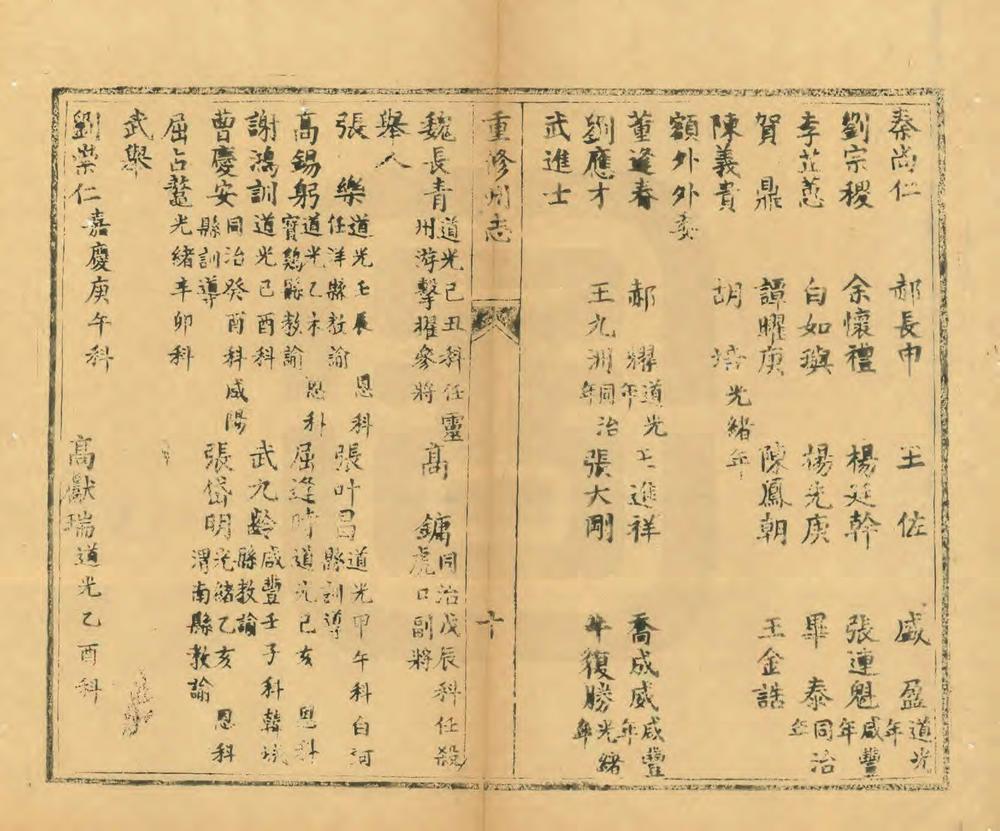 秦尚仁 郝長申 王佐 盛盈道光年
劉宗稷 余懷禮 楊廷幹 張連魁咸豐年
李芷蒽 白如璵 楊光庚 畢泰同治年
賀鼎 譚曜庚 陳鳳朝 王金誥
陳義貴 胡培光緒年
額外外委
董逢春 郝耀道光年 王進祥 喬成威咸豐年
劉應才 王九洲同治年 張大剛 牛復勝光緒年
武進士
重修州志 十
魏長青道光己丑科任靈州游擊擢參將 高鏞同治戊辰科任殺虎口副將
舉人
張樂道光壬辰恩科任洋縣教諭 張叶昌道光甲午科白河縣訓導
高錫躬道光乙未恩科寶鷄縣教諭 屈逢時道光己亥恩科
謝鴻訓道光己酉科 武九齡咸豐壬子科韓城縣教諭
曹慶安同治癸酉科咸陽縣訓導 張岱明光緒乙亥恩科渭南縣教諭
屈占鼇光緒辛卯科
武舉
劉榮仁嘉慶庚午科 高獻瑞道光乙酉科